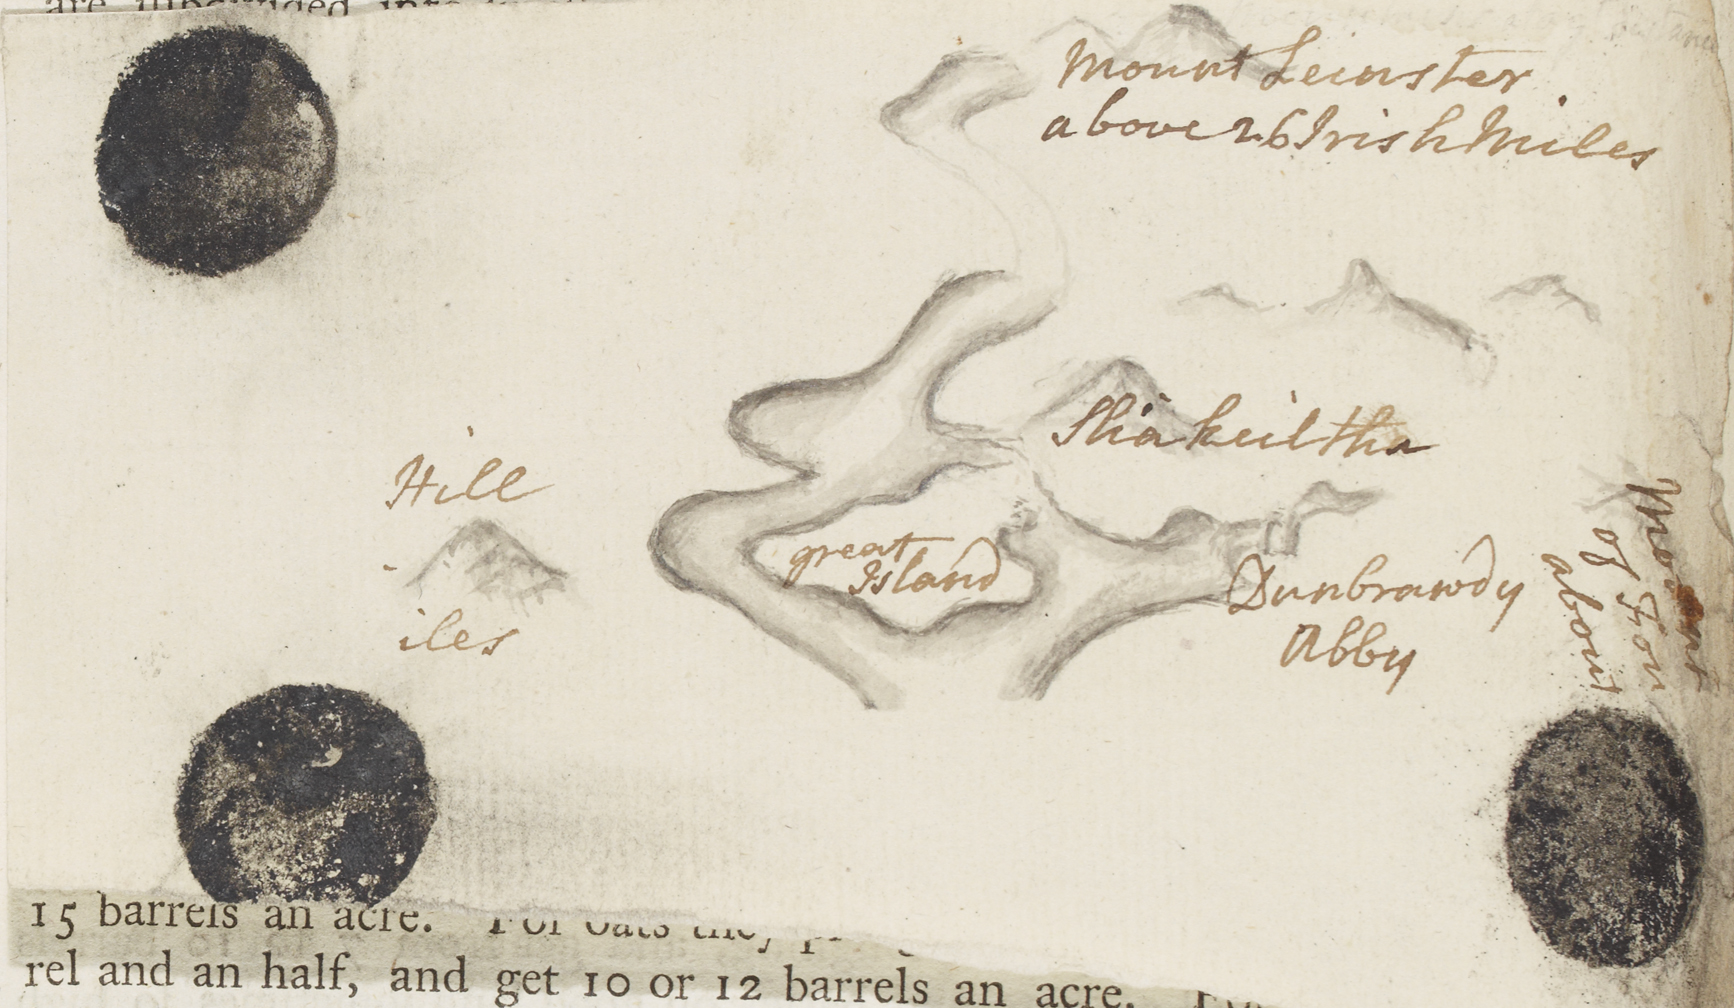 are
Mount Leinster
above 26 Irish Miles
Sliakeiltha
Hill
great
Island
iles
Dunbrawdy
Abby
Mount
of
about
15 barrels an acre. For oats they
rel and an half, and get 10 or 12 barrels an acre.